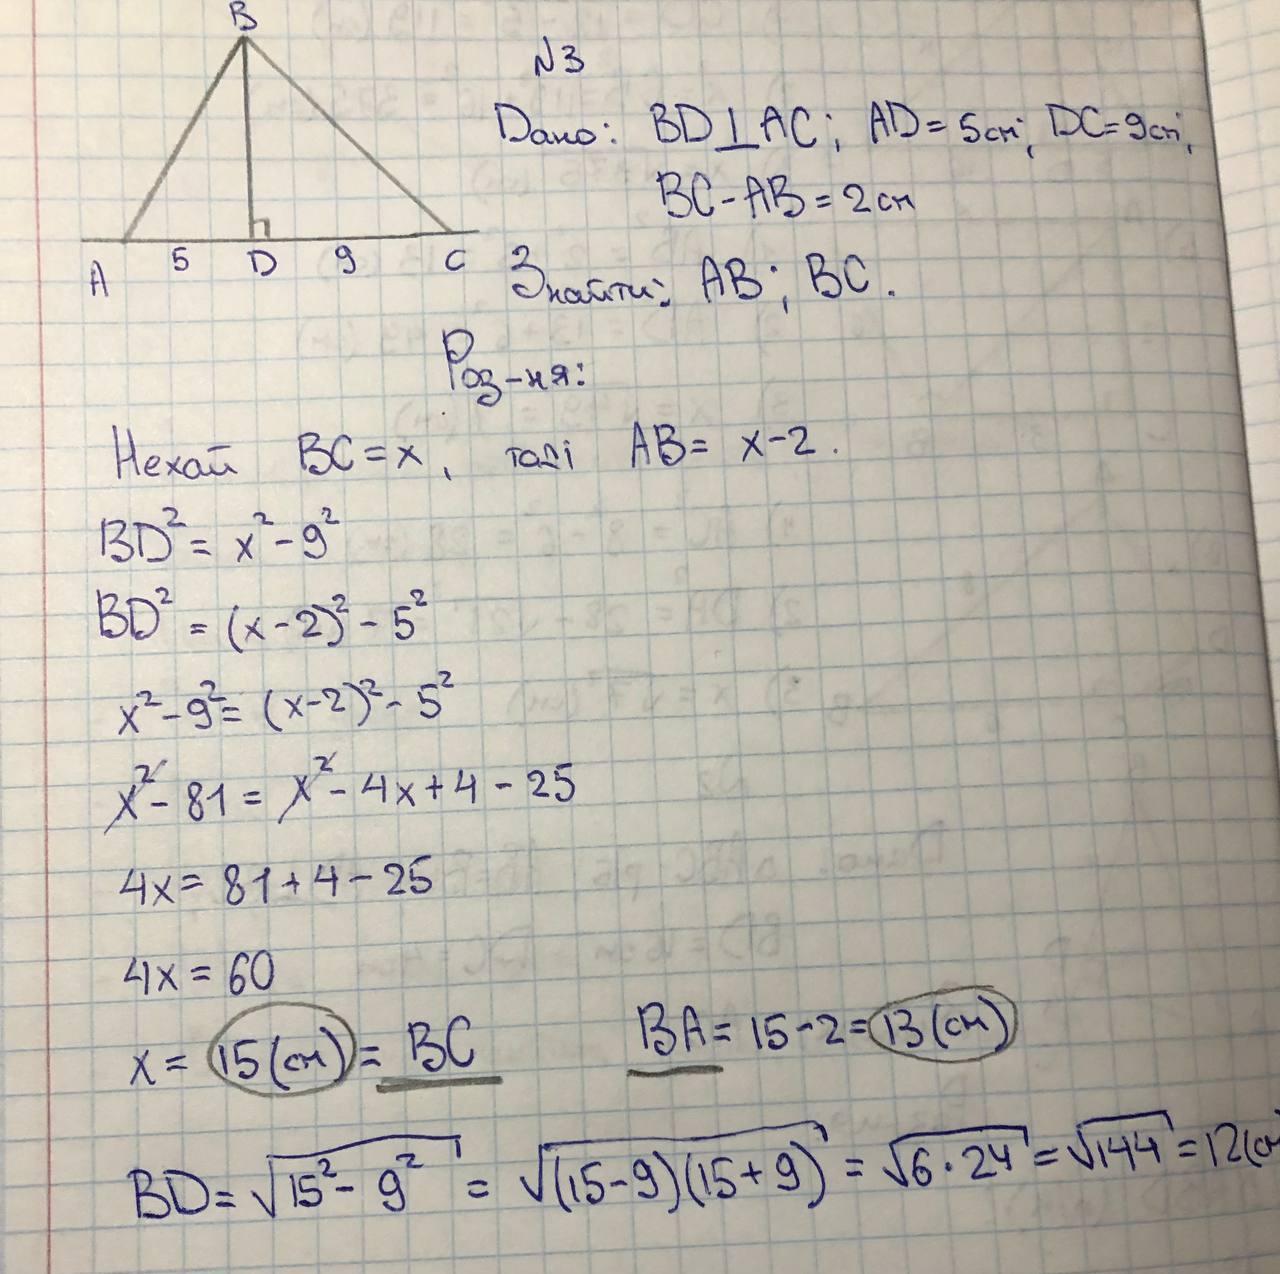 B
A 5 D 9 C
N3
Дано: BD⊥AC; AD=5см; DC=9см;
BC-AB=2см
Знайти: AB; BC.
Роз-ня:
Нехай BC=x, тоді AB= x-2.
BD²= x²-9²
BD²= (x-2)²-5²
x²-9²=(x-2)²-5²
x²-81= x²-4x+4-25
4x= 81+4-25
4x=60
x= 15(см)= BC BA=15-2=13(см)
BD=√15²-9² = √(15-9)(15+9) = √6·24 = √144 =12(см